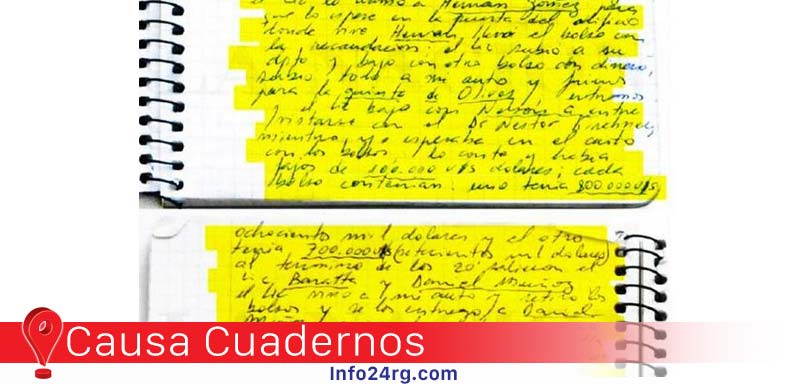 el Lic lo llamó a Hernan Gómez para
que lo espere en la puerta del edificio
donde vive Hernan, llevó el bolso con
la recaudacion; el Lic subio a su
dpto y bajo con otro bolso con dinero,
subio todo a mi auto y fuimos
para la quinta de Olivos, entramos
y el Lic bajo con Nelson a entre
vistarse con el Dr Nestor Kirchner,
mientras yo esperaba en el auto
con los bolsos, lo conto y habia
fajos de 100.000 u$s dolares; cada
bolso contenian: uno tenia 800.000 u$s
ochocientos mil dolares y el otro
tenia 700.000 u$s (setecientos mil dolares)
al termino de los 20' salieron el
Lic Baratta y Daniel Muñoz
el Lic vino a mi auto y retiro los
bolsos y se los entrego a Daniel
Muñoz
Causa Cuadernos
Info24rg.com